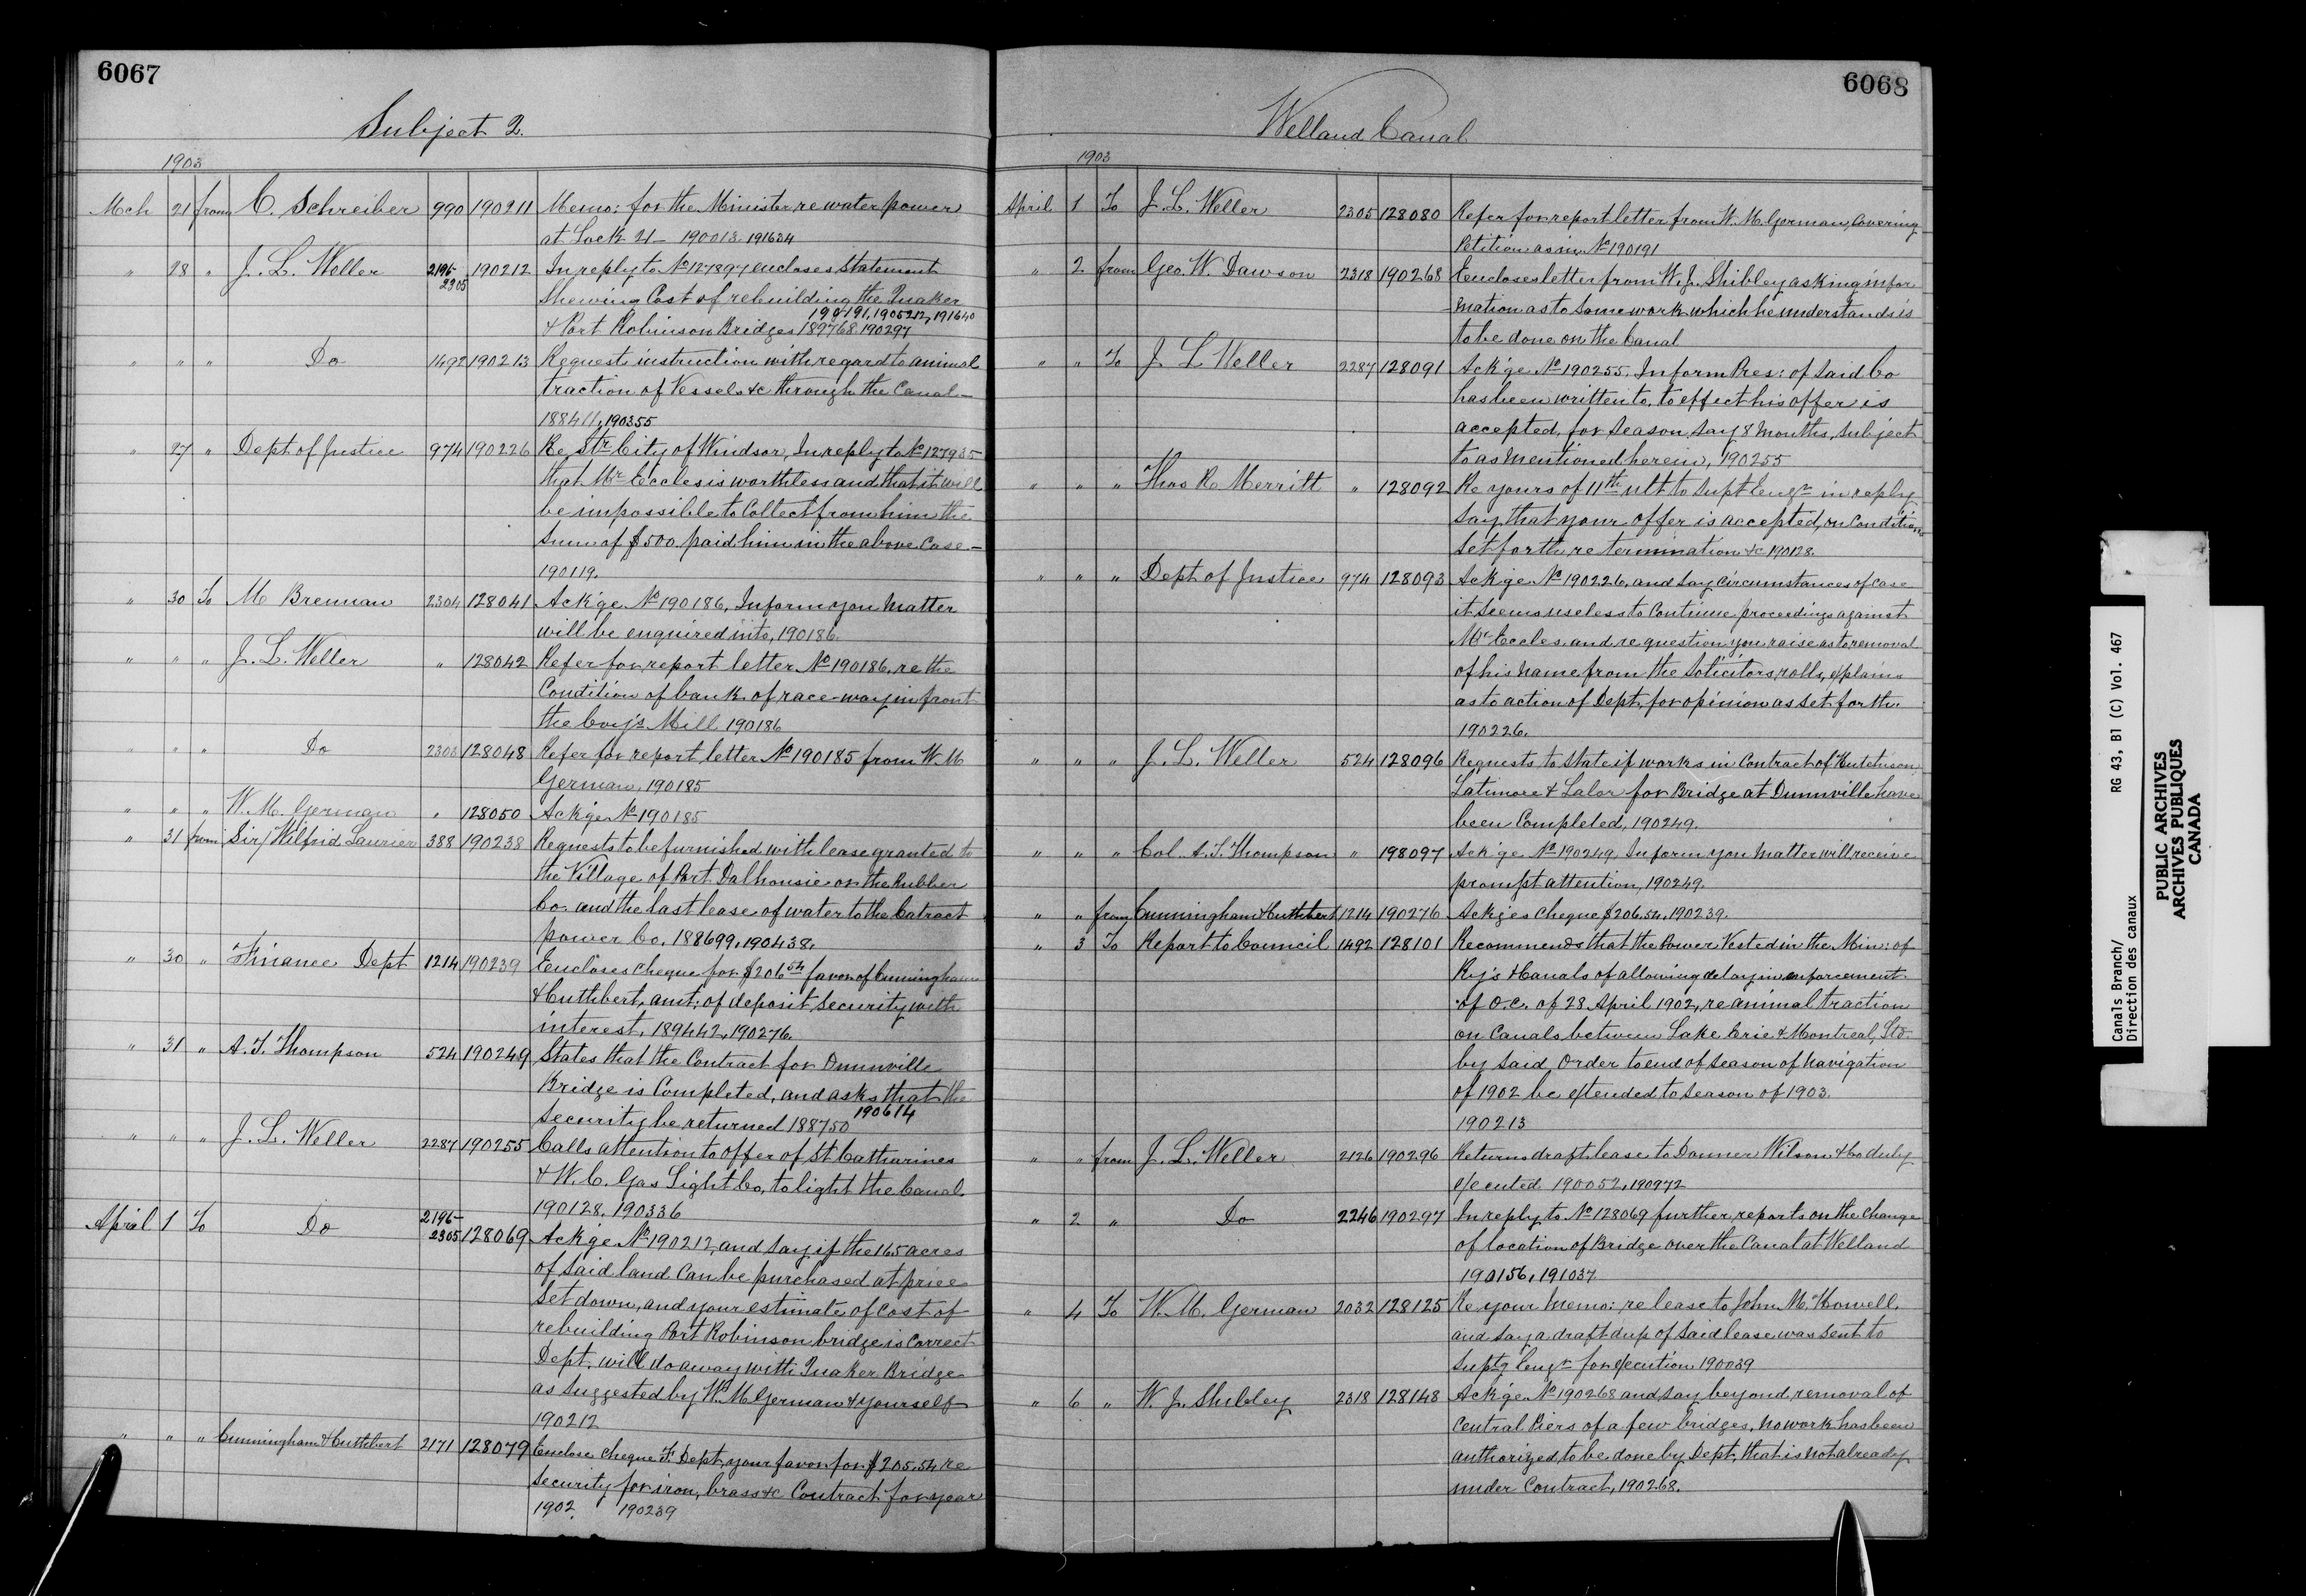 6067
Subject 2.
1903
Mch 21 from C. Schreiber 990 190211 Memo: for the Minister re water power
at Lock 21 – 190013. 191634
" 28 " J. L. Weller 2196- 2305 190212 In reply to No 127897 encloses statement
Shewing Cost of rebuilding the Quaker
190191, 1905212, 191640
& Port Robinson Bridges 189768. 190297
" " " Do 1492 190213 Requests instruction with regard to animal
traction of Vessels &c through the Canal –
188411, 190355
" 27 " Dept of Justice 974 190226 Re Str City of Windsor, In reply to No 127935
that Mr Eccles is worthless and that it will
be impossible to Collect from him the
Sum of $500. paid him in the above Case –
190119.
" 30 To M Brennan 2304 128041 Ack'ge No 190186, Inform you Matter
will be enquired into, 190186.
" " " J. L. Weller " 128042 Refer for report letter No 190186, re the
Condition of bank of race-way in front
the Coy's Mill 190186
" " " Do 2303 128048 Refer for report letter No 190185 from W M
German, 190185
" " " W. M. German " 128050 Ack'ge No 190185
" 31 from Sir Wilfrid Laurier 388 190238 Requests to be furnished with lease granted to
the Village of Port Dalhousie on the Rubber
Co. and the last lease of water to the Catract
power Co. 188699, 190438.
" 30 " Finance Dept 1214 190239 Encloses Cheque for $206.54 favor of Cunningham
& Cuthbert, amt: of deposit Security with
interest, 189442, 190276.
" 31 " A. T. Thompson 524 190249 States that the Contract for Dunnville
Bridge is Completed, and asks that the
Security be returned 188750 190614
" " " J. L. Weller 2287 190255 Calls attention to offer of St Catharines
& W. C. Gas Light Co, to light the Canal.
190128, 190336
April 1 To Do 2196- 2305 128069 Ack'ge No 190212, and say if the 165 acres
of said land Can be purchased at price
Set down, and your estimate of Cost of
rebuilding Port Robinson bridge is Correct
Dept. will do away with Quaker Bridge
as Suggested by Wm M German & yourself
190212
" " " Cunningham & Cuthbert 2171 128079 Enclose Cheque F. Dept, your favor for $205.54 re
Security for iron, brass &c Contract for year
1902. 190239
6068
Welland Canal
1903
April 1 To J. L. Weller 2305 128080 Refer for report letter from W. M. German, Covering
Petition as in No 190191
" 2 from Geo. W. Dawson 2318 190268 Encloses letter from W. J. Shibley asking infor
mation as to Some work which he understands is
to be done on the Canal
" " To J. L Weller 2287 128091 Ack'ge No 190255. Inform Pres: of Said Co
has been written to, to effect his offer is
accepted, for Season, Say 8 Months, Subject
to as Mentioned herein, 190255
" " " Thos R. Merritt " 128092 Re yours of 11th ult to Supt Engr in reply
Say that your offer is accepted, on Conditions
Set forth re termination &c 190128.
" " " Dept of Justice 974 128093 Ack'ge No 190226, and Say Circumstances of Case
it Seems useless to Continue proceedings against
Mr Eccles, and re question you raise as to removal
of his name from the Solicitors rolls, explains
as to action of Dept, for opinion as Set forth.
190226.
" " " J. L. Weller 524 128096 Requests to State if works in Contract of Hutchison,
Latimore & Lalor for Bridge at Dunnville have
been Completed, 190249.
" " " Col. A. T. Thompson " 198097 Ack'ge No 190249, Inform you Matter will receive
prompt attention, 190249.
" " from Cunningham & Cuthbert 1214 190276 Ack'ges Cheque $206.54, 190239.
" 3 To Report to Council 1492 128101 Recommends that the Power Vested in the Min: of
Ry's & Canals of allowing delay in enforcement
of O.C. of 28 April 1902, re animal traction
on Canals between Lake Erie & Montreal, Ltd
by Said Order to end of Season of Navigation
of 1902 be extended to Season of 1903.
190213
" " from J. L. Weller 2126 190296 Returns draft lease to Donner Wilson & Co duly
executed 190052, 190972
" 2 " Do 2246 190297 In reply to No 128069 further reports on the Change
of location of Bridge over the Canal at Welland
190156, 191037
" 4 To W. M. German 2032 128125 Re your Memo: re lease to John M. Howell.
and Say a draft dup of Said lease was Sent to
Suptg Engr for execution 190039
" 6 " W. J. Shibley 2318 128148 Ack'ge No 190268 and Say beyond, removal of
Central Piers of a few bridges, No work has been
authorized to be done by Dept, that is not already
under Contract, 190268.
Canals Branch/ RG 43, B1 (C) Vol. 467
Direction des canaux
PUBLIC ARCHIVES
ARCHIVES PUBLIQUES
CANADA